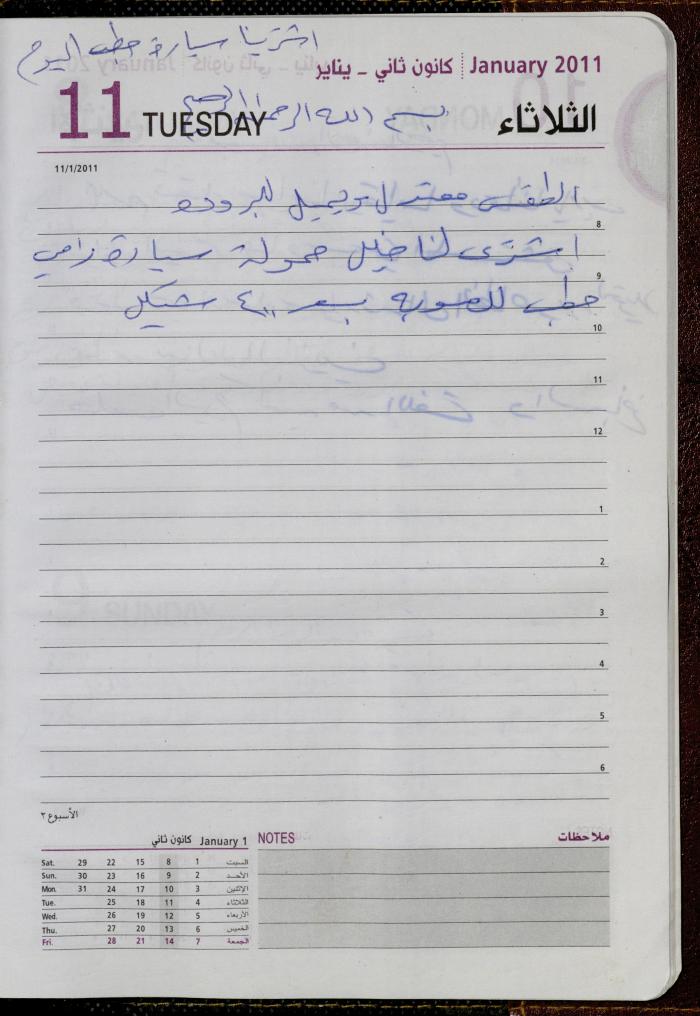 اشترينا سيارة حطب اليوم
January 2011 كانون ثاني - يناير
بسم الله الرحمن الرحيم
11 TUESDAY الثلاثاء
11/1/2011
الطقس معتدل ويميل للبروده
8
اشترى لنا خليل حمولة سيارة
9
حطب للصوبه بسعر ٤٠٠ شيكل
10
11
12
1
2
3
4
5
6
الأسبوع ٢
January 1 كانون ثاني
Sat. 29 22 15 8 1 السبت
Sun. 30 23 16 9 2 الأحد
Mon. 31 24 17 10 3 الإثنين
Tue. 25 18 11 4 الثلاثاء
Wed. 26 19 12 5 الأربعاء
Thu. 27 20 13 6 الخميس
Fri. 28 21 14 7 الجمعة
NOTES ملاحظات